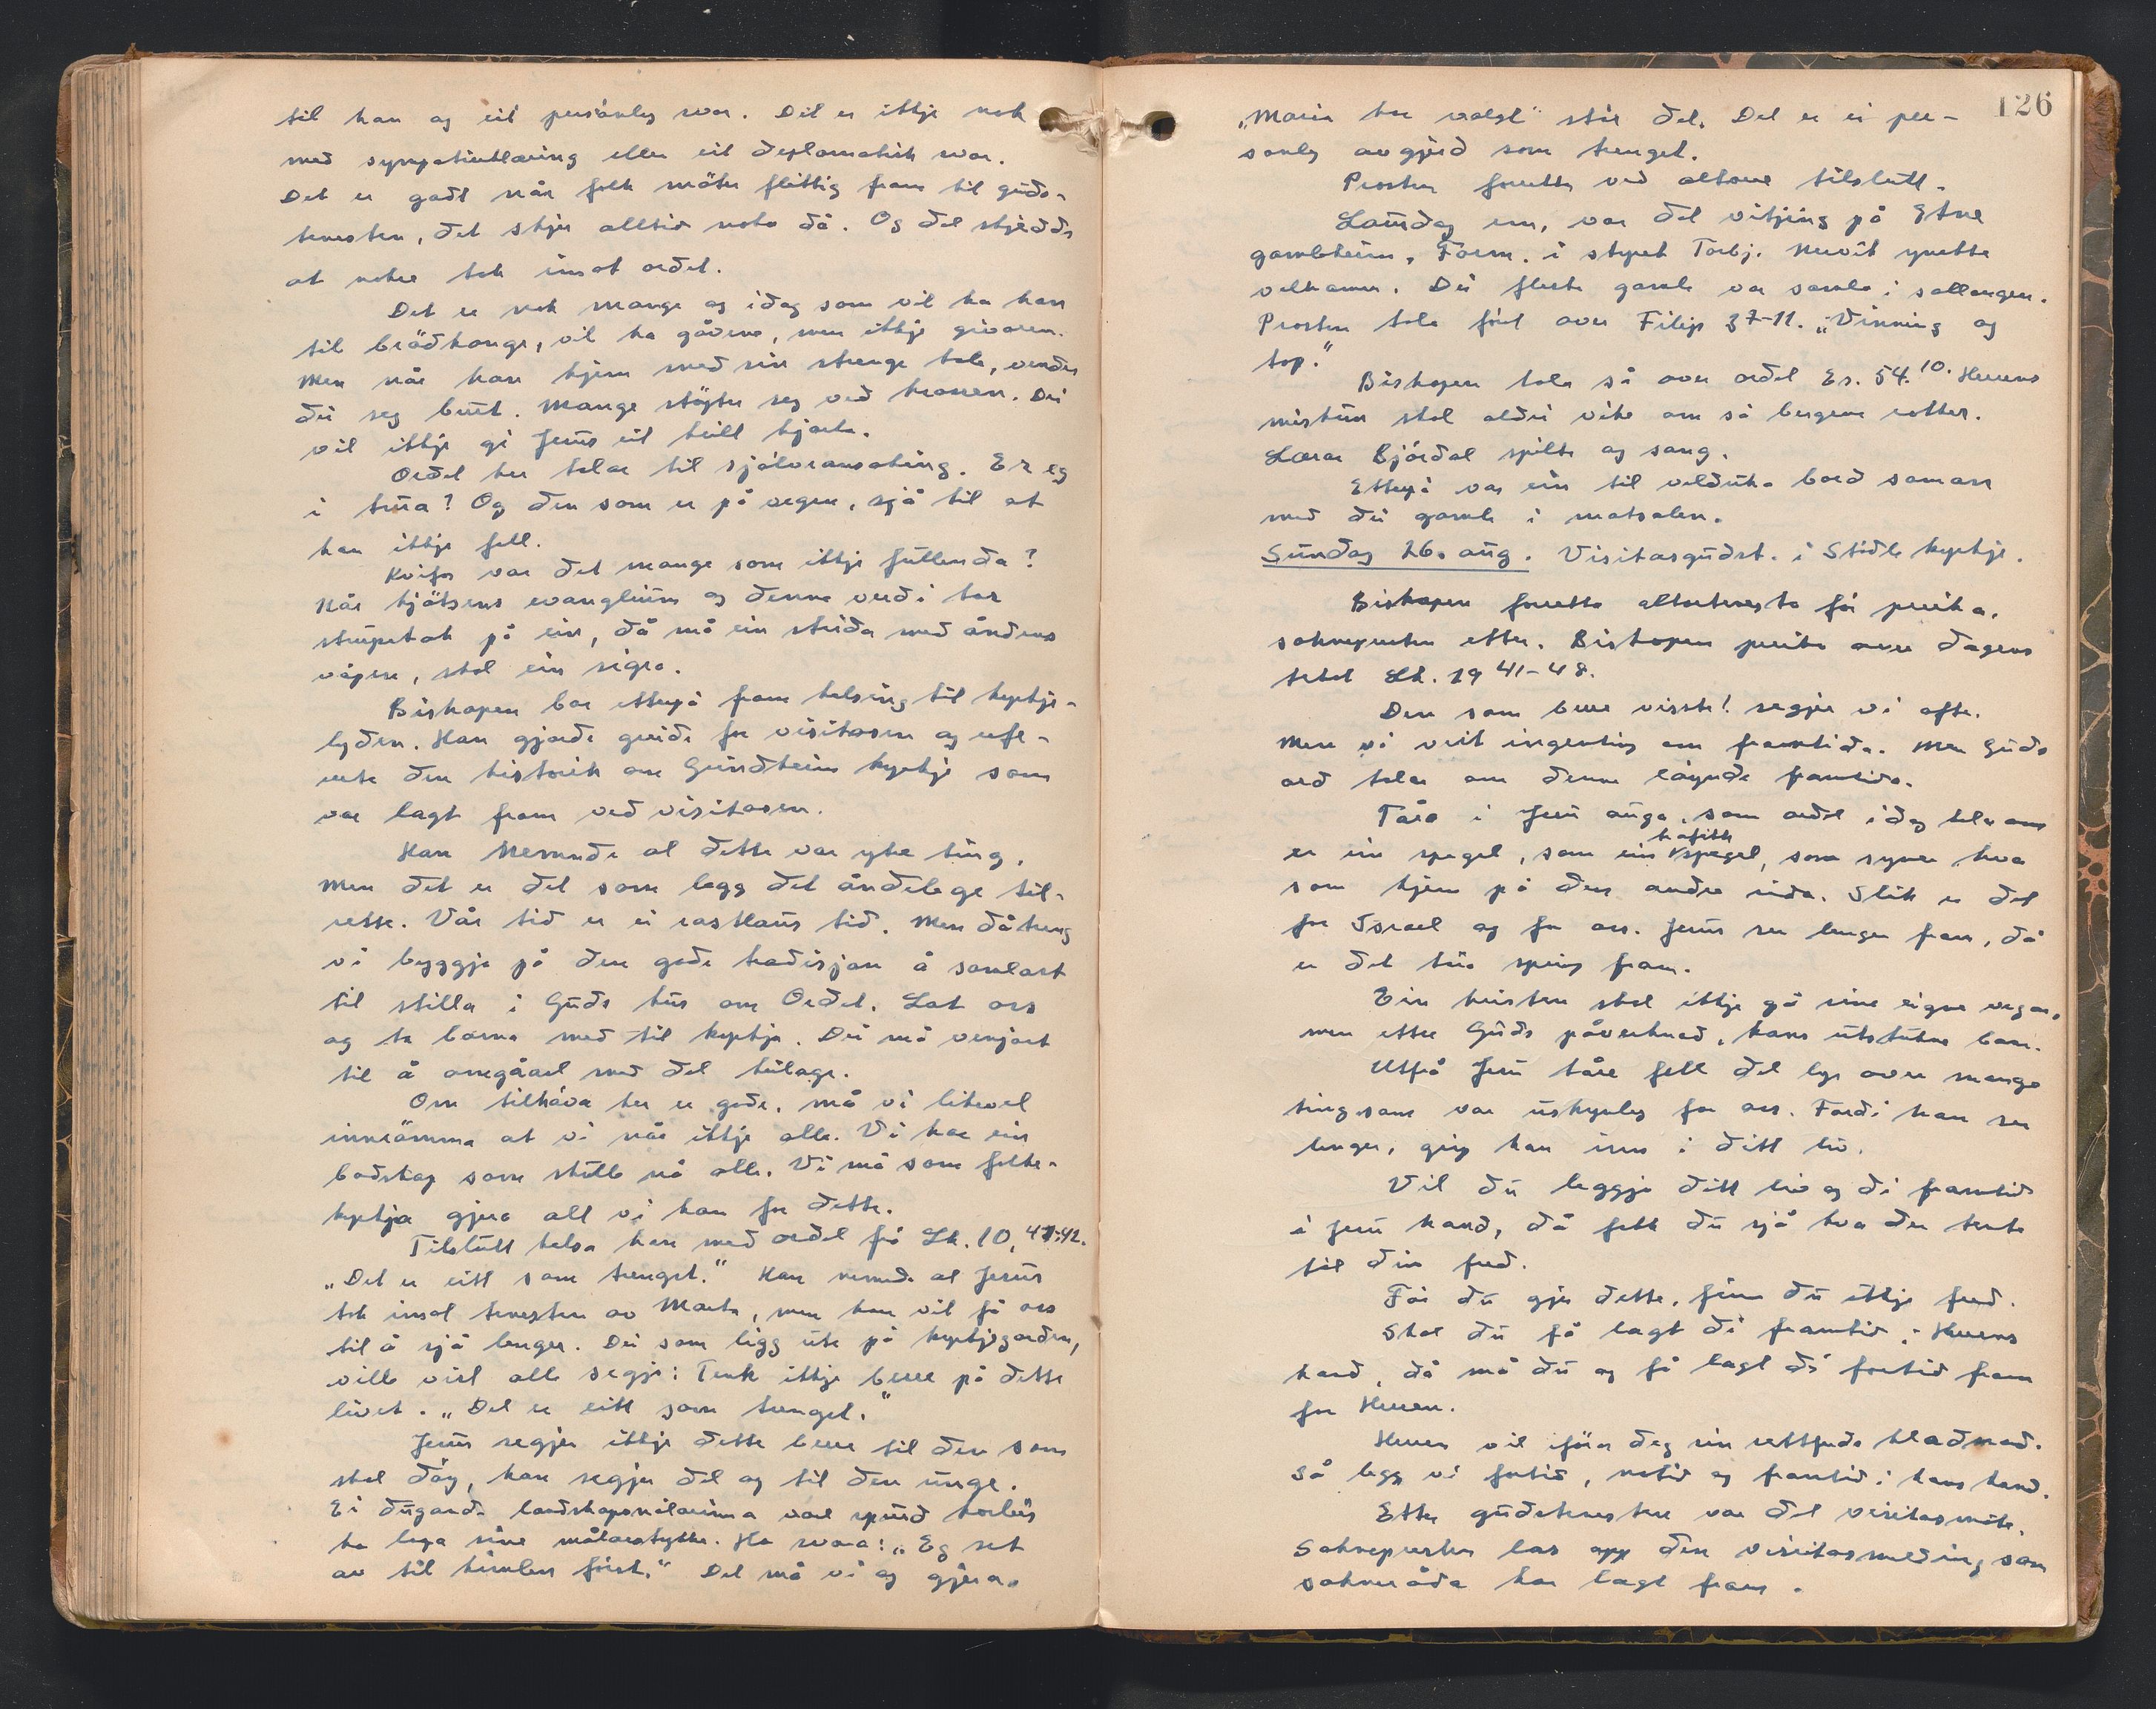 til han og eit personleg svar. Det er ikkje nok
med sympatiutlæring eller eit deplomatisk svar.
Det er godt når folk møter flittig fram til guds-
tenesten, det skjer alltid noko då. Og det skjedde
at nokre tok imot ordet.
Det er nok mange og idag som vil ha han
til brødkonge, vil ha gåvene, men ikkje givaren.
Men når han kjem med sin strenge tale, vender
dei seg burt. Mange støyter seg ved krossen. Dei
vil ikkje gi Jesus eit heilt hjarta.
Ordet her talar til sjølvransaking. Er eg
i trua? Og den som er på vegen, sjå til at
han ikkje fell.
Kvifor var det mange som ikkje fullenda?
Når kjøtsens evanglium og denne verdi tar
strupetak på ein, då må ein strida med åndens
våpen, skal ein sigra.
Biskopen bar etterpå fram helsing til kyrkje-
lyden. Han gjorde greide for visitasen og refe-
rerte den historik om Grindheim kyrkje som
var lagt fram ved visitasen.
Han nemnde at dette var ytre ting,
men det er det som legg det åndelege til-
rette. Vår tid er ei rastlaus tid. Men då treng
vi byggja på den gode tradisjon å samlast
til stilla i Guds hus om Ordet. Lat oss
og ta borna med til kyrkja. Dei må venjast
til å omgåast med det heilage.
Om tilhøva her er gode, må vi likevel
innrømma at vi når ikkje alle. Vi har ein
bodskap som skulle nå alle. Vi må som folke-
kyrkja gjera alt vi kan for dette.
Tilslutt helsa han med ordet frå Lk. 10, 41-42.
„Det er eitt som trengst.” Han nemnde at Jesus
tok imot tenesten av Marta, men han vil få oss
til å sjå lenger. Dei som ligg ute på kyrkjegarden,
ville vist alle segja: Tenk ikkje berre på dette
livet. „Det er eitt som trengst.”
Jesus segjer ikkje dette berre til den som
skal døy, han segjer det og til den unge.
Ei dugande landskapsmålarinna vart spurd korleis
ho laga sine målarstykke. Ho svara: „Eg set
av til himlen først.” Det må vi og gjera.
126
„Maria har valgt” står det. Det er ei per-
sonleg avgjerd som trengst.
Prosten forretta ved altaret tilslutt.
Laurdag em. var det vitjing på Etne
gamleheim, Form. i styret Torbj. ynskte
velkomen. Dei fleste gamle var samla i sallongen.
Prosten tala først over Filip 3 7-11. „Vinning og
tap.”
Biskopen tala så over ordet Es. 54.10. Herrens
miskun skal aldri vika om så bergene rotter.
Lærar Bjørdal spilte og song.
Etterpå var ein til veldukka bord saman
med dei gamle i matsalen.
Sundag 26. aug. Visitasgudst. i Stødle kyrkje.
Biskopen forretta altartenesta før preika,
sokнepresten etter. Biskopen preika over dagens
tekst Lk. 19 41-48.
Den som berre visste! segjer vi ofte.
Men vi veit ingenting om framtida. Men Guds
ord talar om denne løynde framtida.
Tåra i Jesu auga, som ordet idag talar om
er ein spegel, som ein trafikk spegel, som syner kva
som kjem på den andre sida. Slik er det
for Israel og for oss. Jesus ser lenger fram, då
er det tåra spring fram.
Ein kristen skal ikkje gå sine eigne vegar,
men etter Guds påverknad, hans utstukne bane.
Utfrå Jesu tåre fell det lys over mange
ting som var uskynleg for oss. Fordi han ser
lenger, grip han inn i ditt liv.
Vil du leggja ditt liv og di framtid
i Jesu hand, då fekk du sjå kva der tente
til din fred.
Før du gjer dette, finn du ikkje fred.
Skal du få lagt di framtid i Herrens
hand, då må du og få lagt di fortid fram
for Herren.
Herren vil iføra deg sin rettferds kledning.
Så legg vi fortid, notid og framtid i hans hand.
Etter gudstenesten var det visitasmøte.
Sokнepresten las opp den visitasmelding som
sokneråda har lagt fram.